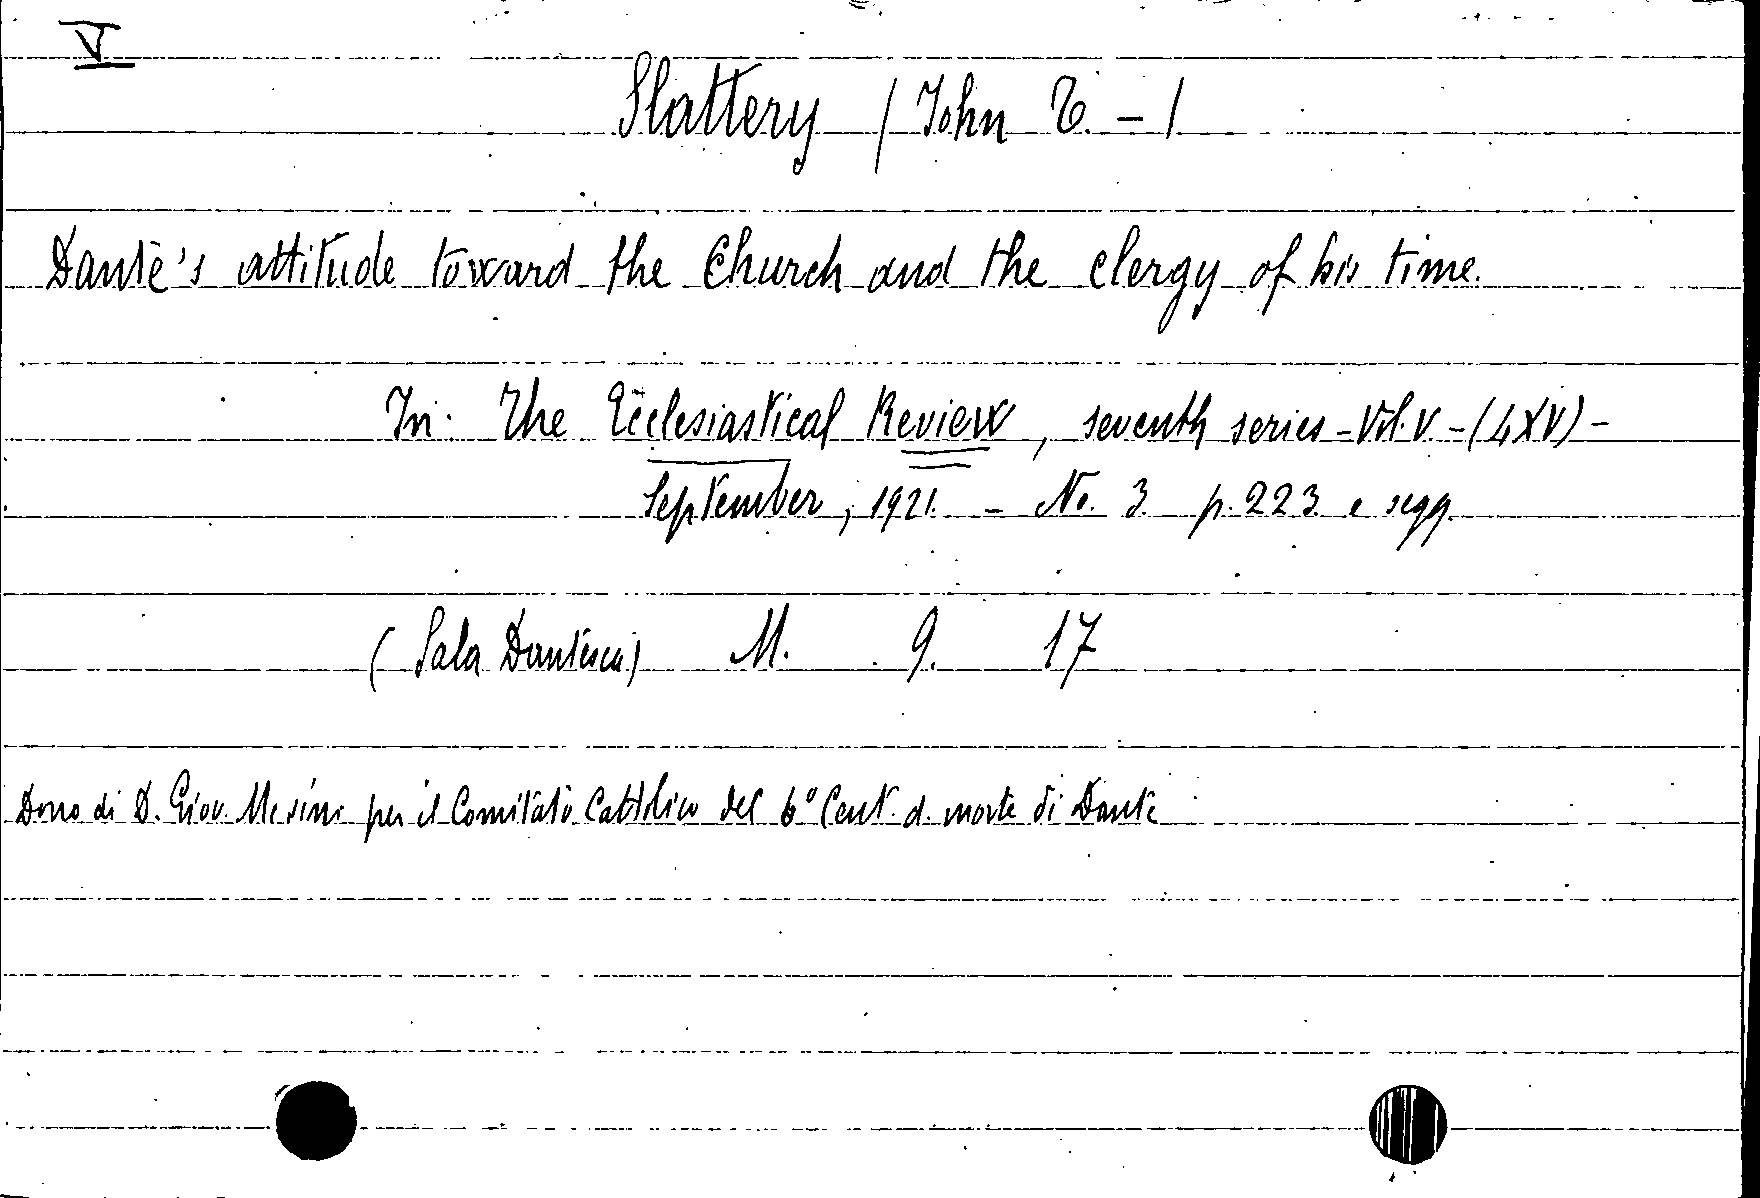 V
Slattery / John T. - /
Dante's attitude toward the Church and the clergy of his time.
In: The Ecclesiastical Review, seventh series - Vol. V. - (LXV) -
September, 1921. - No. 3. p. 223 e segg.
(Sala Dantesca) M. 9. 17
Dono di D. Giov. Mesini per il Comitato Cattolico del 6° Cent. d. morte di Dante